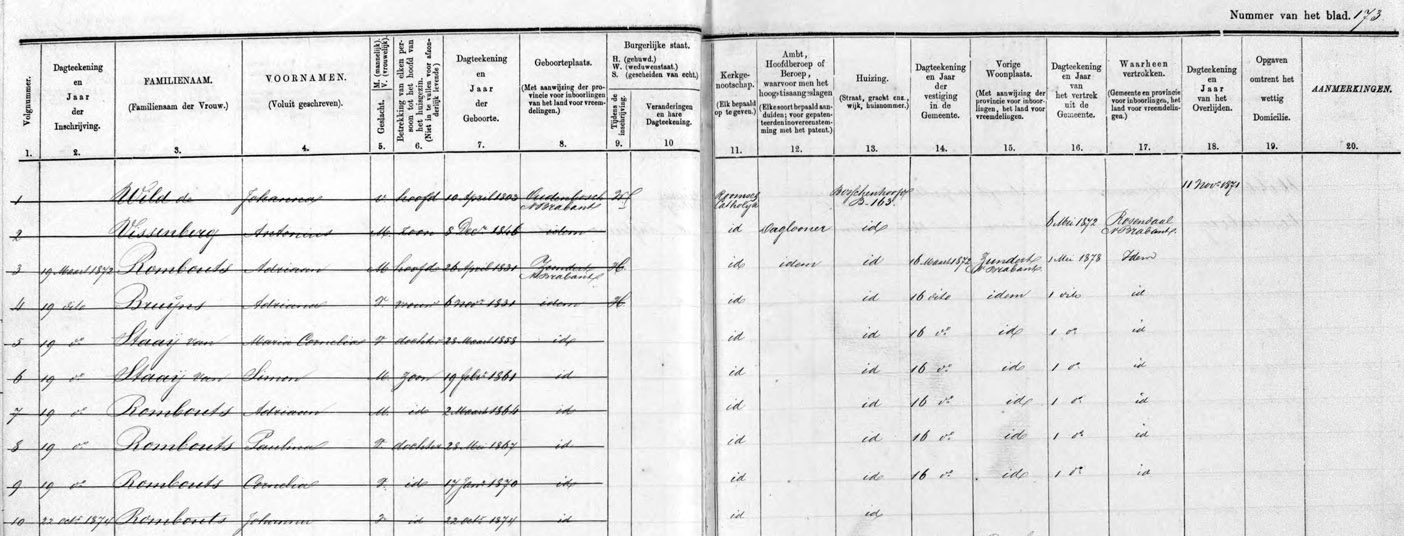 Nummer van het blad. 173
Volgnummer.
Dagteekening
en
Jaar
der
Inschrijving.
FAMILIENAAM.
(Familienaam der Vrouw.)
VOORNAMEN.
(Voluit geschreven).
Geslacht. M. (mannelijk). V. (vrouwelijk).
Betrekking van elken per-
soon tot het hoofd van
het huisgezin.
(Niet in te vullen voor afzon-
derlijk levende)
Dagteekening
en
Jaar
der
Geboorte.
Geboorteplaats.
(Met aanwijzing der pro-
vincie voor inboorlingen
en van het land voor vreem-
delingen.)
Burgerlijke staat.
H. (gehuwd.)
W. (weduwenstaat.)
S. (gescheiden van echt.)
Tijdens de
inschrijving.
Veranderingen
en hare
Dagteekening.
Kerkge-
nootschap.
(Elk bepaald
op te geven.)
Ambt,
Hoofdberoep of
Beroep,
waarvoor men het
hoogst is aangeslagen
(Elke soort bepaald aan-
duiden; voor gepaten-
teerden in overeenstem-
ming met het patent.)
Huizing.
(Straat, gracht enz.,
wijk, huisnommer.)
Dagteekening
en Jaar
der
vestiging
in de
Gemeente.
Vorige
Woonplaats.
(Met aanwijzing der
provincie voor inboor-
lingen, het land voor
vreemdelingen.)
Dagteekening
en Jaar
van
het vertrek
uit de
Gemeente.
Waarheen
vertrokken.
(Gemeente en provincie
voor inboorlingen, het
land voor vreemdelin-
gen.)
Dagteekening
en
Jaar
van het
Overlijden.
Opgaven
omtrent het
wettig
Domicilie.
AANMERKINGEN.
1. 2. 3. 4. 5. 6. 7. 8. 9. 10 11. 12. 13. 14. 15. 16. 17. 18. 19. 20.
1 Wild de Johanna v. hoofd 10 April 1803 Oudenbosch N Brabant W Roomsch Catholijk B 163. 11 Nov. 1871
2 Vissenberg Antonius M zoon 8 Dec. 1846 idem id Daglooner id 6 Mei 1872 Rosendaal N Brabant
3 19 Maart 1872 Rombouts Adriaan M hoofd 26 April 1831 Zundert N Brabant H. id idem id 16 Maart 1872 Zundert N Brabant 1 Mei 1878 Idem
4 19 dito Bruijns Adriana V vrouw 6 Nov. 1831 idem H. id id 16 dito idem 1 dito id
5 19 do Staaij van Maria Cornelia V dochter 28 Maart 1858 id id id 16 do id 1 do id
6 19 do Staaij van Simon M. zoon 19 febr 1861 id id id 16 do id 1 do id
7 19 do Rombouts Adriaan M id 2 Maart 1864 id id id 16 do id 1 do id
8 19 do Rombouts Paulina V dochter 28 Mei 1867 id id id 16 do id 1 do id
9 19 do Rombouts Cornelia V. id 17 Jan 1870 id id id 16 do id 1 do id
10 22 oct. 1874 Rombouts Johanna V id 22 oct. 1874 id id id